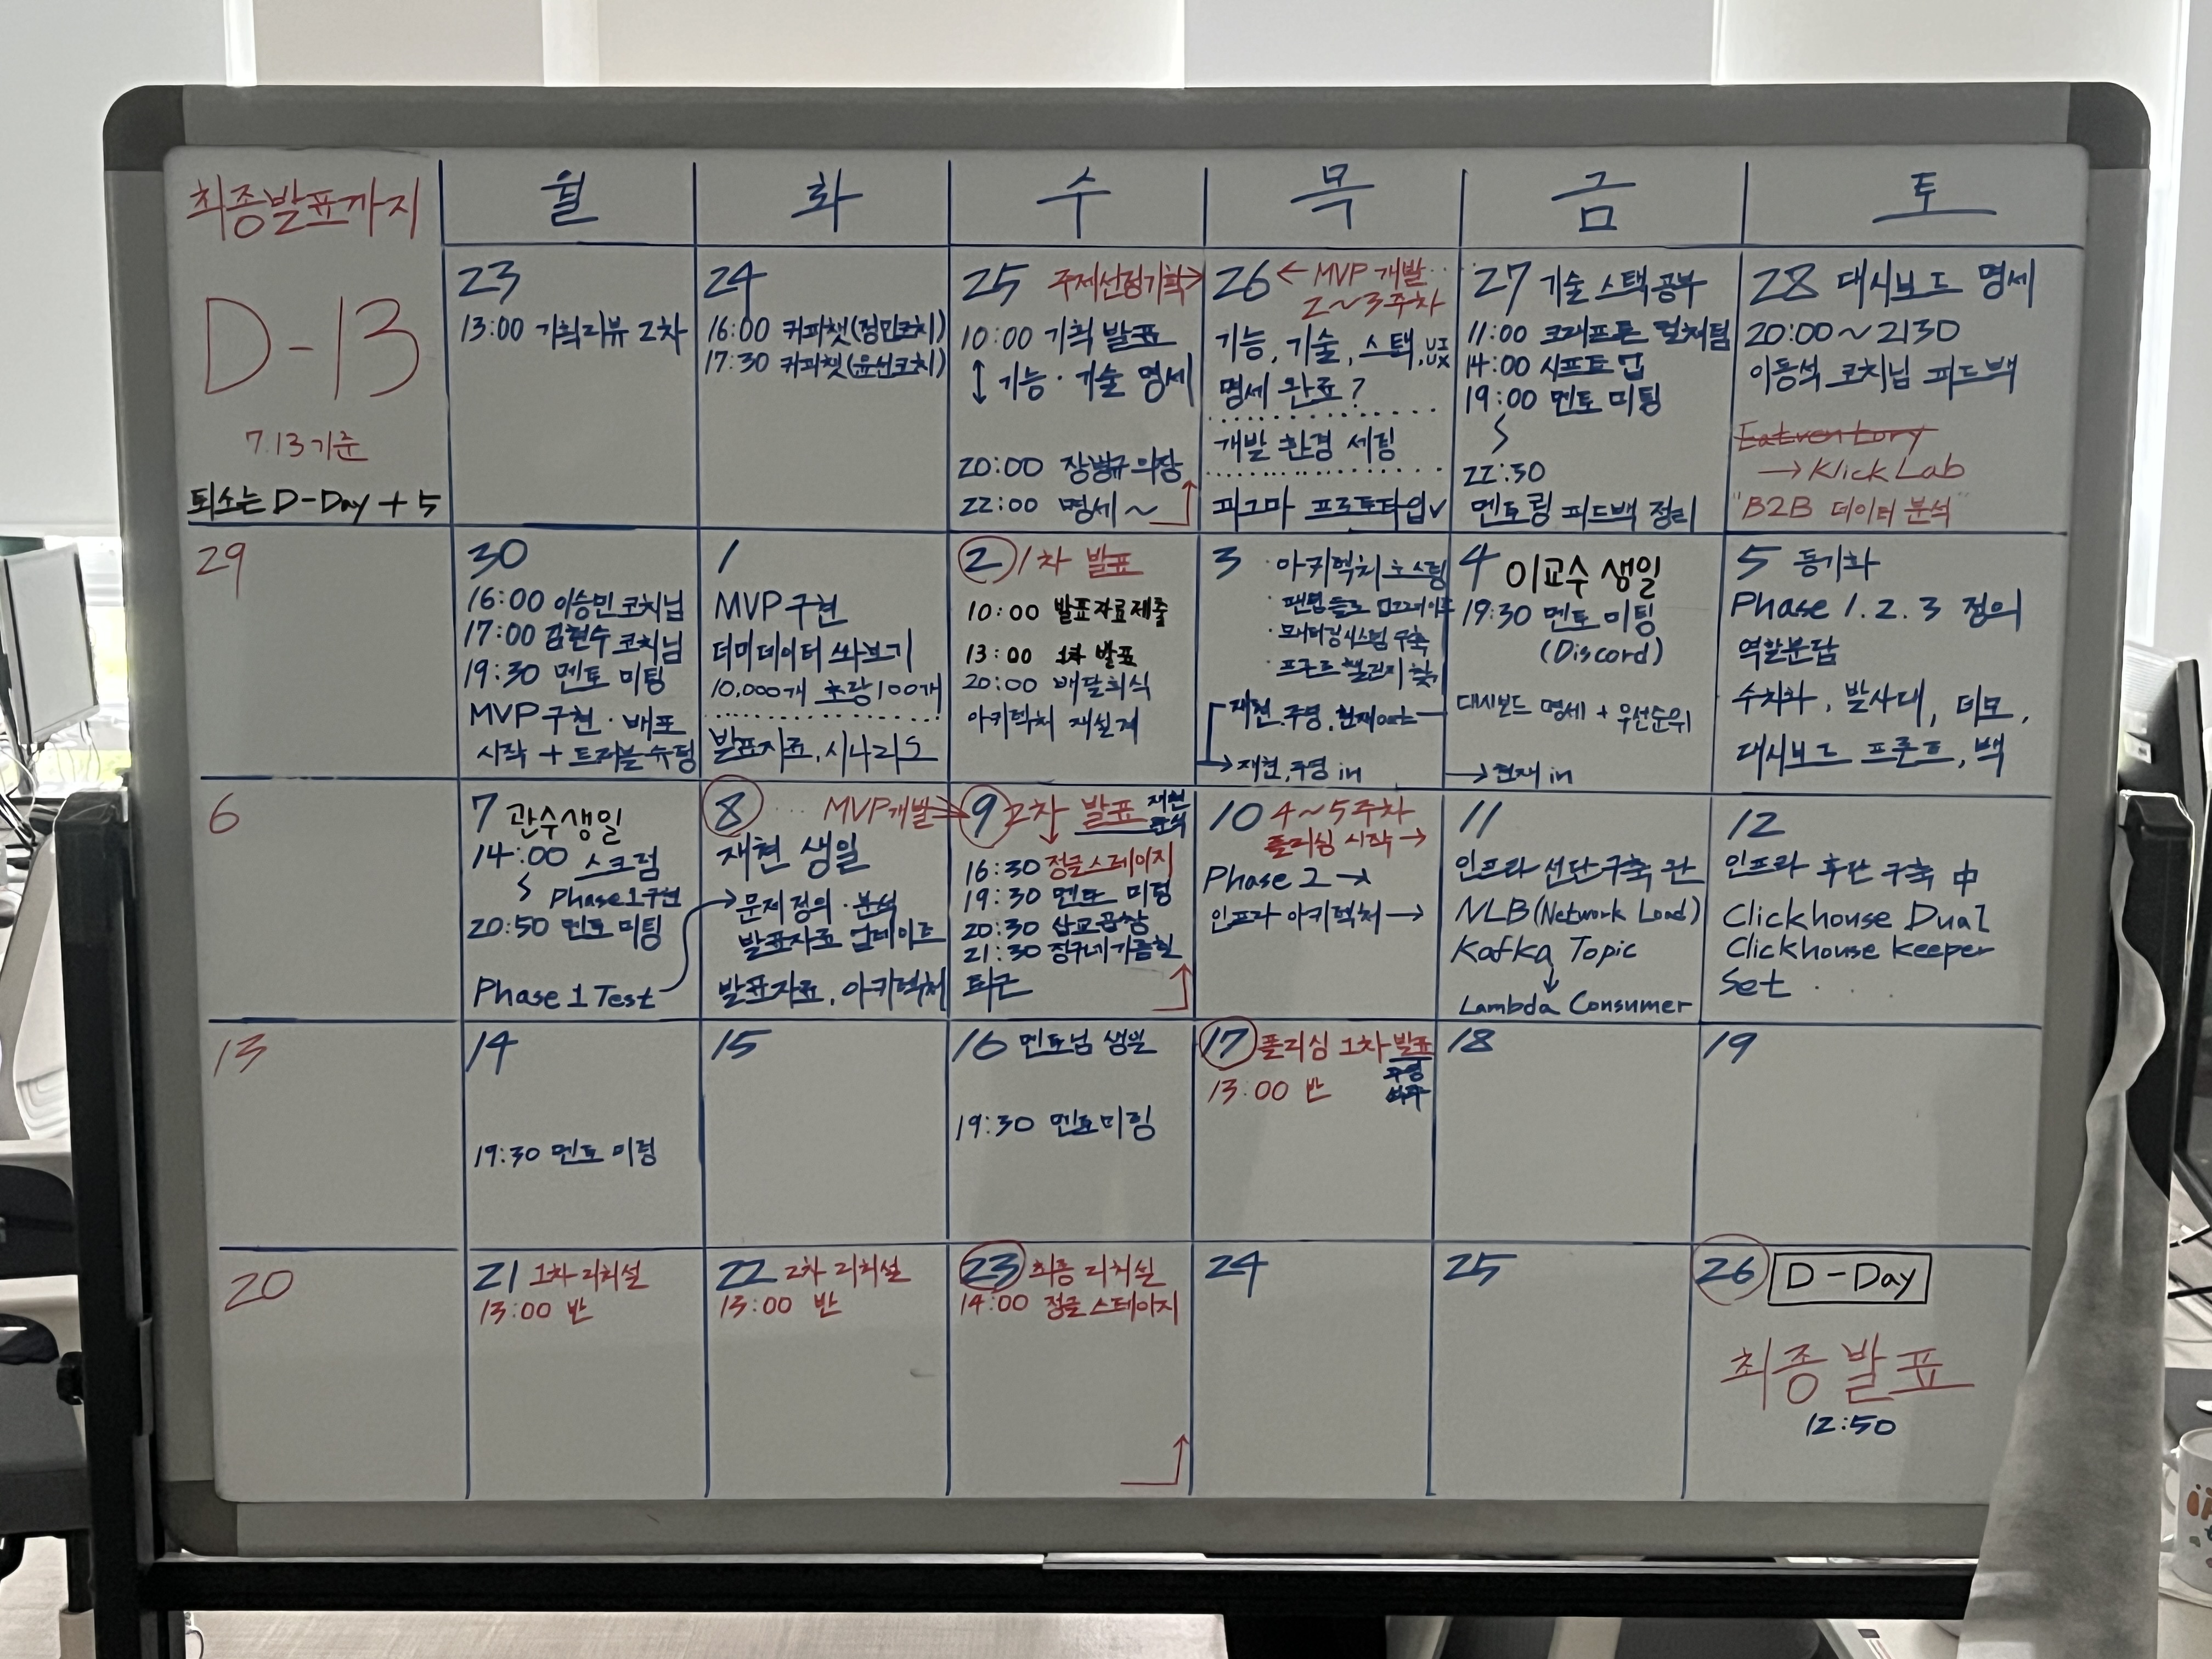 최종발표까지
D-13
7.13 기준
퇴소는 D-Day + 5
월
화
수
목
금
토
23
13:00 기획리뷰 2차
24
16:00 커피챗(정민코치)
17:30 커피챗(윤선코치)
25 주제선정기획→
10:00 기획 발표
↕ 기능·기술 명세
20:00 장병규 의장
22:00 명세 ~
26 ← MVP 개발
2~3주차
기능, 기술, 스택, UI UX
명세 완료?
개발 환경 세팅
피그마 프로토타입✓
27 기술 스택 공부
11:00 크래프톤 컬처팀
14:00 시프트업
19:00 멘토 미팅
22:30
멘토링 피드백 정리
28 대시보드 명세
20:00~2130
이동석 코치님 피드백
Eatventory
→ Klick Lab
"B2B 데이터 분석"
29
30
16:00 이승민 코치님
17:00 김현수 코치님
19:30 멘토 미팅
MVP 구현·배포
시작 + 트러블슈팅
1
MVP 구현
더미데이터 쏴보기
10,000개 초당 100개
발표자료, 시나리오
2 1차 발표
10:00 발표자료제출
13:00 1차 발표
20:00 배달회식
아키텍처 재설계
3 · 아키텍처 호스팅
· 모니터링시스템 구축
· 프론트 챌린지 찾기
재현, 주영, 현재 out
→ 재현, 주영 in
4 이교수 생일
19:30 멘토 미팅
(Discord)
대시보드 명세 + 우선순위
→ 현재 in
5 동기화
Phase 1. 2. 3 정의
역할분담
수치화, 발사대, 데모,
대시보드 프론트, 백
6
7 관수생일
14:00 스크럼
Phase 1 구현
20:50 멘토 미팅
Phase 1 Test
8 MVP개발→
재현 생일
→문제정의·분석
발표자료 업데이트
발표자료, 아키텍처
9 2차 발표 재현
16:30 정글스테이지
19:30 멘토 미팅
20:30 삼교곱창
21:30
퇴근
10 4~5주차
폴리싱 시작 →
Phase 2 →
인프라 아키텍처 →
11
인프라 선단구축 완
NLB(Network Load)
Kafka Topic
↓
Lambda Consumer
12
인프라 후단 구축 中
Clickhouse Dual
Clickhouse Keeper
Set
13
14
19:30 멘토 미팅
15
16 멘토님 생일
19:30 멘토미팅
17 폴리싱 1차 발표
주영
13:00 반
18
19
20
21 1차 리허설
13:00 반
22 2차 리허설
13:00 반
23 최종 리허설
14:00 정글 스테이지
24
25
26 D-Day
최종발표
12:50